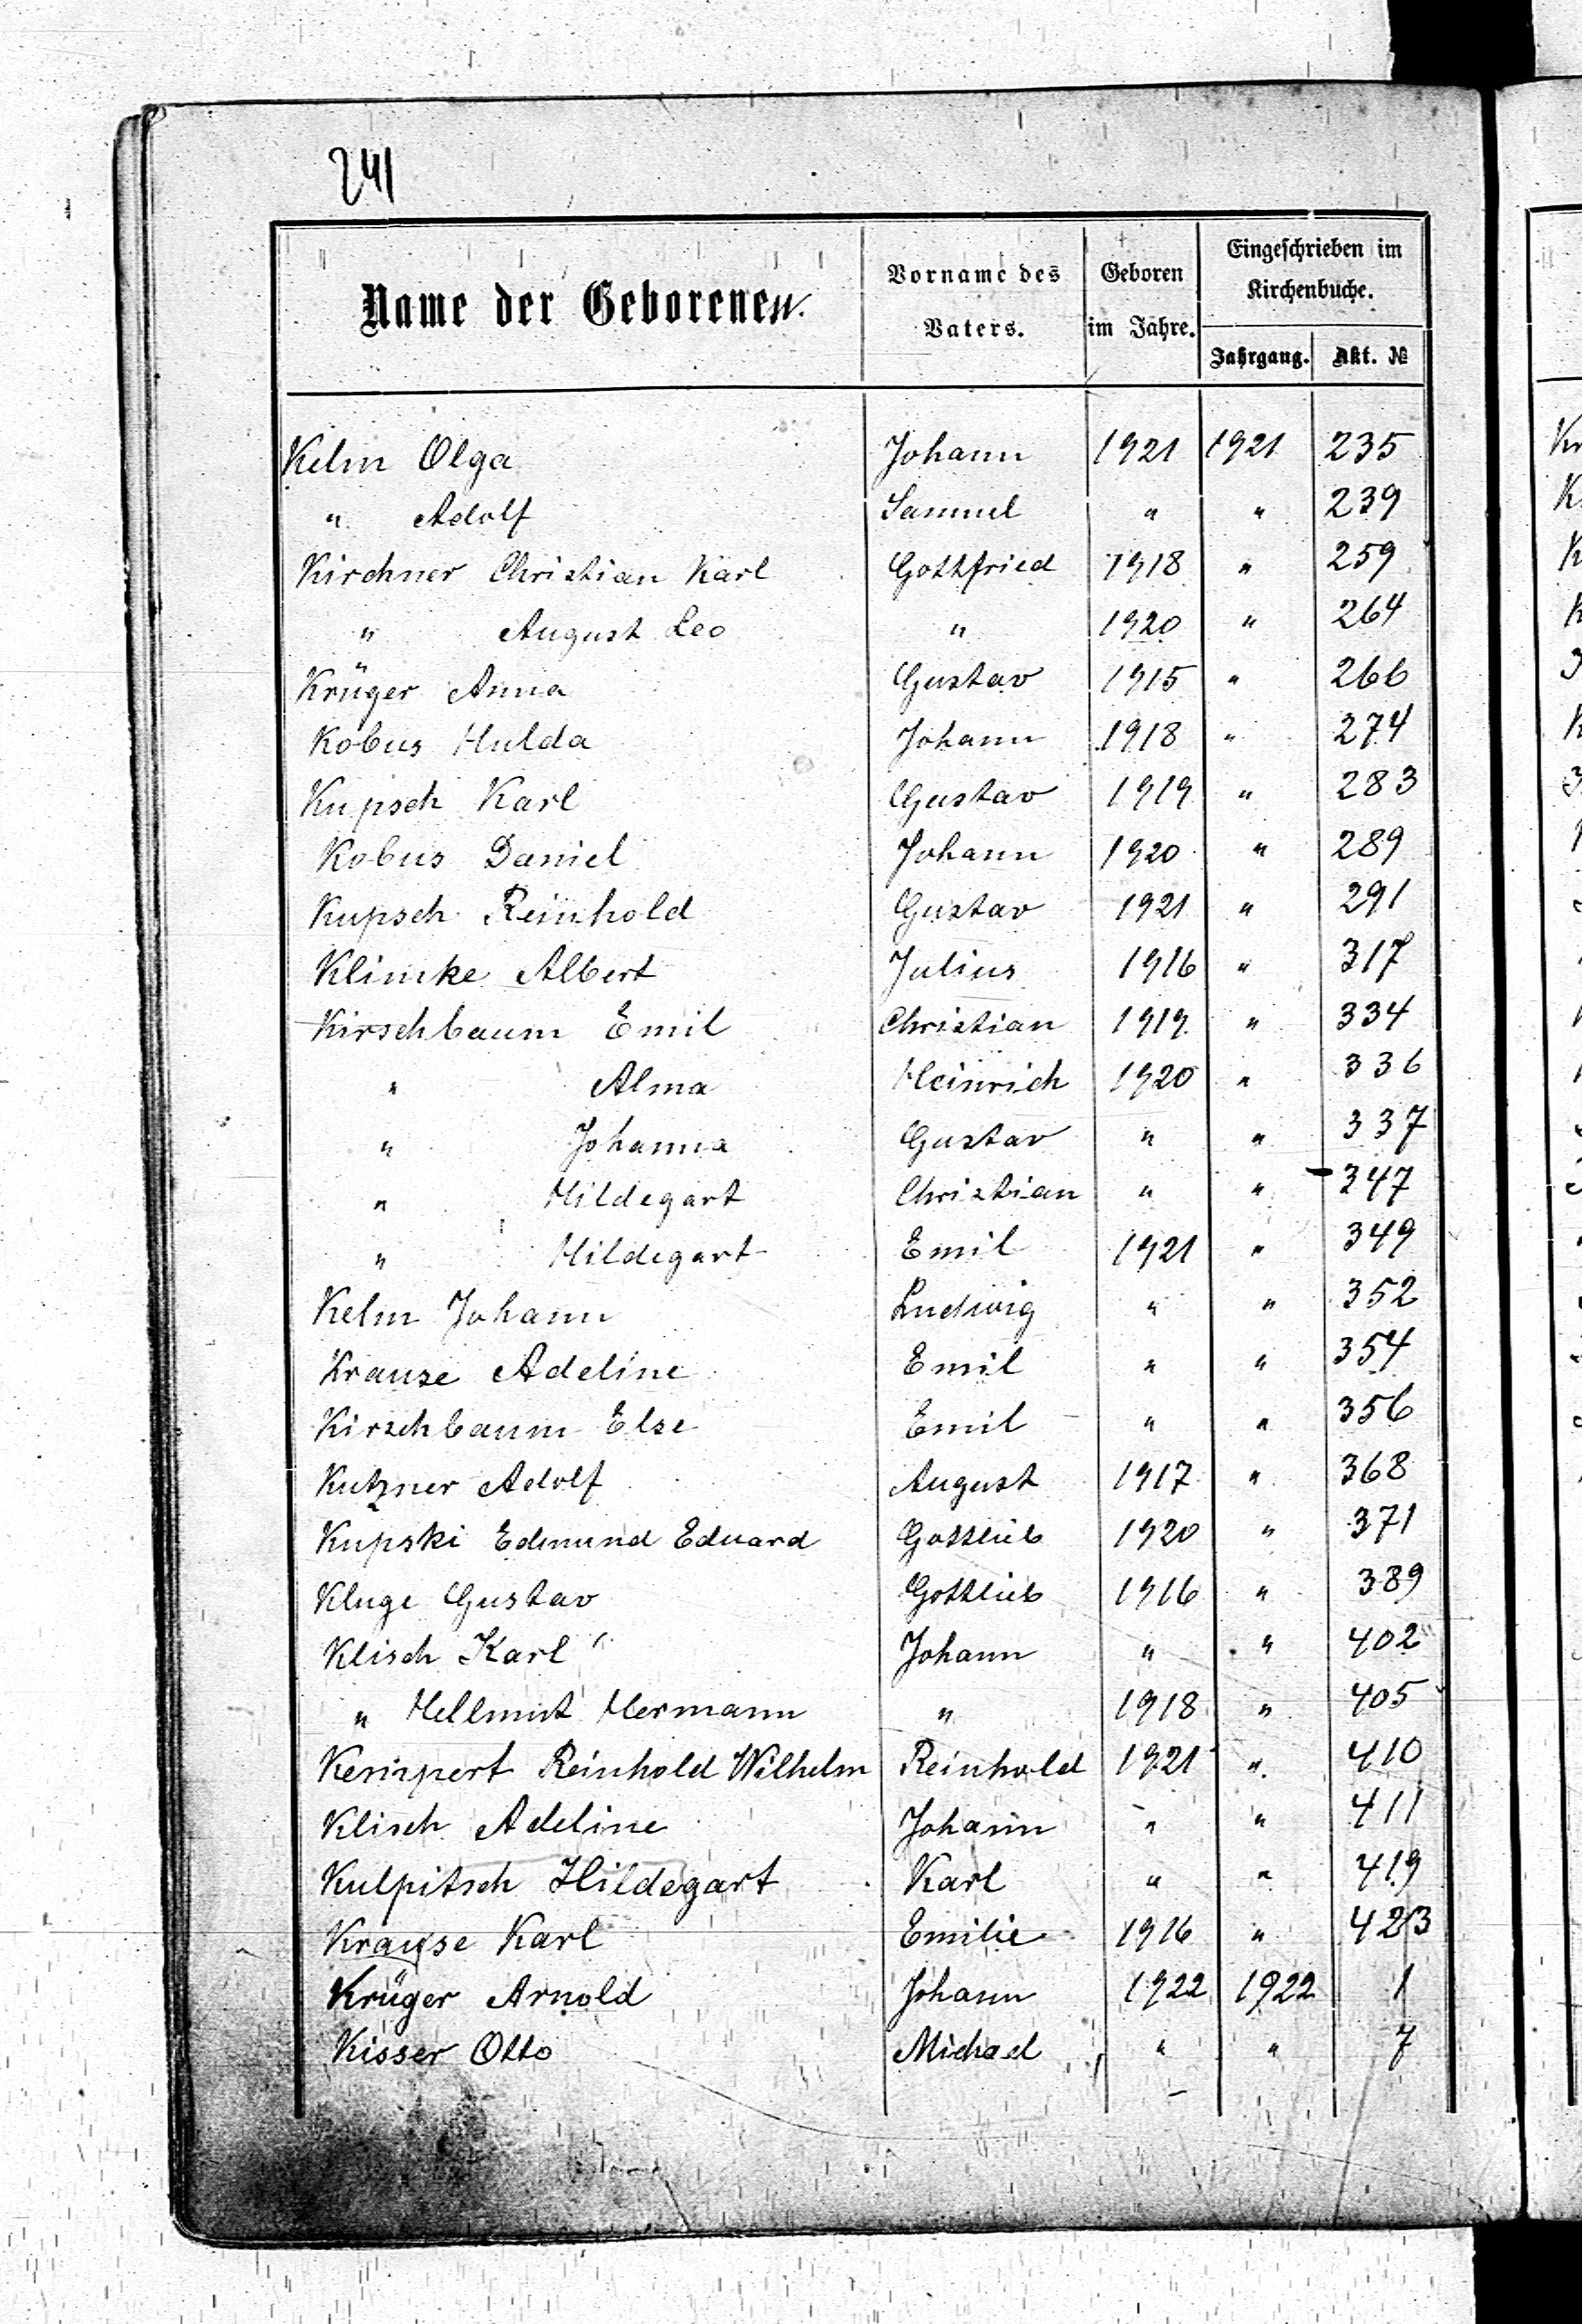 241
Name der Geborenen.
Vorname des Vaters.
Geboren im Jahre.
Eingeschrieben im Kirchenbuche.
Jahrgang. Akt. №
Kelm Olga Johann 1921 1921 235
" Adolf Samuel " " 239
Kirchner Christian Karl Gottfried 1918 " 259
" August Leo " 1920 " 264
Krüger Anna Gustav 1915 " 266
Kobus Hulda Johann 1918 " 274
Kupsch Karl Gustav 1919 " 283
Kobus Daniel Johann 1920 " 289
Kupsch Reinhold Gustav 1921 " 291
Klimke Albert Julius 1916 " 317
Kirschbaum Emil Christian 1919 " 334
" Alma Heinrich 1920 " 336
" Johanna Gustav " " 337
" Hildegart Christian " " 347
" Hildegart Emil 1921 " 349
Kelm Johann Ludwig " " 352
Krause Adeline Emil " " 354
Kirschbaum Else Emil " " 356
Kutzner Adolf August 1917 " 368
Kupski Edmund Eduard Gottlieb 1920 " 371
Kluge Gustav Gottlieb 1916 " 389
Klisch Karl Johann " " 402
" Hellmut Hermann " 1918 " 405
Kempert Reinhold Wilhelm Reinhold 1921 " 410
Klisch Adeline Johann " " 411
Kulpitsch Hildegart Karl " " 419
Krause Karl Emilie 1916 " 423
Krüger Arnold Johann 1922 1922 1
Kisser Otto Michael " " 7